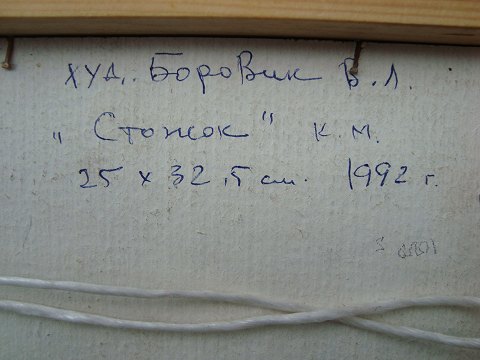 худ. Боровик В.Л.
„Стожок" к.м.
25 х 32,5 см. 1992 г.